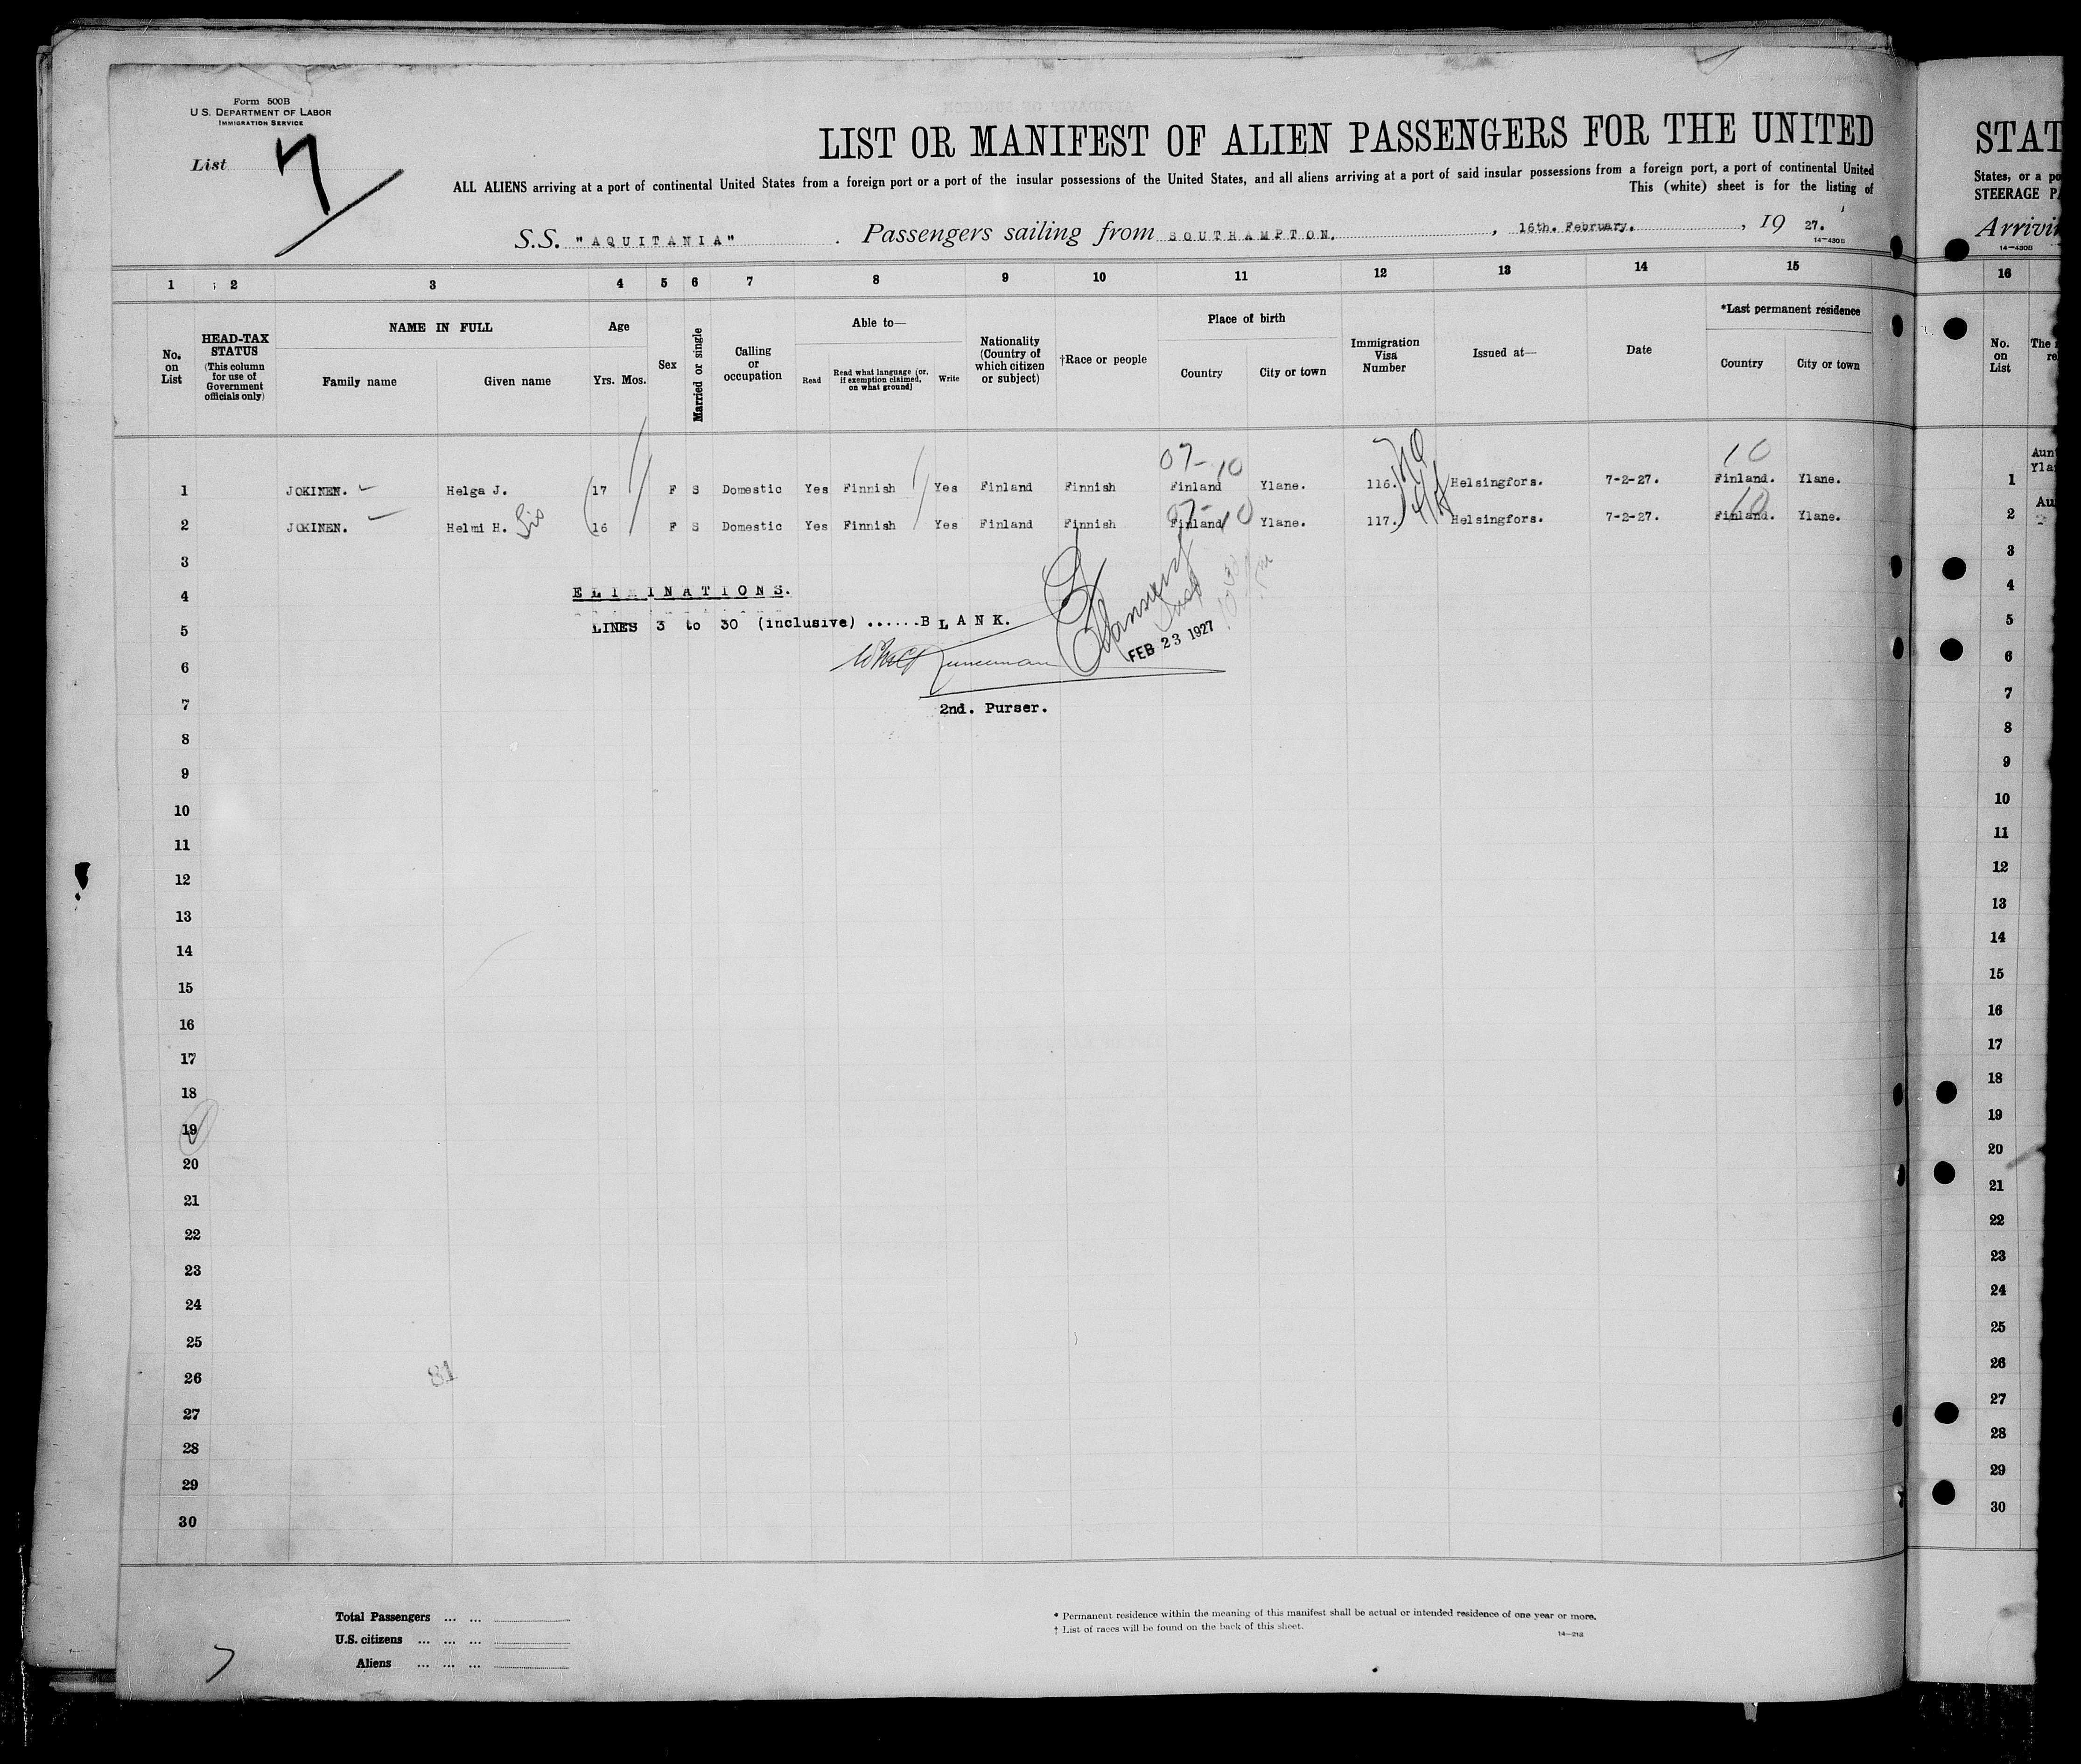 Form 500B
U. S. DEPARTMENT OF LABOR
IMMIGRATION SERVICE
List 7
LIST OR MANIFEST OF ALIEN PASSENGERS FOR THE UNITED
ALL ALIENS arriving at a port of continental United States from a foreign port or a port of the insular possessions of the United States, and all aliens arriving at a port of said insular possessions from a foreign port, a port of continental United
This (white) sheet is for the listing of
S.S. "AQUITANIA" . Passengers sailing from SOUTHAMPTON. , 16th. February. , 19 27.
14—430B
1 2 3 4 5 6 7 8 9 10 11 12 13 14 15
No. on List
HEAD-TAX STATUS (This column for use of Government officials only)
NAME IN FULL
Family name Given name
Age
Yrs. Mos.
Sex
Married or single
Calling or occupation
Able to—
Read Read what language (or, if exemption claimed, on what ground) Write
Nationality (Country of which citizen or subject)
†Race or people
Place of birth
Country City or town
Immigration Visa Number
Issued at—
Date
*Last permanent residence
Country City or town
07- 10 10
1 JOKINEN. Helga J. 17 F S Domestic Yes Finnish Yes Finland Finnish Finland Ylane. 116. Helsingfors. 7-2-27. Finland. Ylane.
07- 10 10
2 JOKINEN. Helmi H. Sis 16 F S Domestic Yes Finnish Yes Finland Finnish Finland Ylane. 117. Helsingfors. 7-2-27. Finland. Ylane.
3
4 ELIMINATIONS.
5 LINES 3 to 30 (inclusive) ......BLANK.
FEB 23 1927
6
7 2nd. Purser.
8
9
10
11
12
13
14
15
16
17
18
19
20
21
22
23
24
25
26
81
27
28
29
30
Total Passengers ... ...
U.S. citizens ... ... ...
Aliens ... ... ...
* Permanent residence within the meaning of this manifest shall be actual or intended residence of one year or more.
† List of races will be found on the back of this sheet.
14—213
STAT
States, or a po
STEERAGE PA
Arrivin
14—430B
16
No. on List
The
re
Aun
Yla
1
Au
2
3
4
5
6
7
8
9
10
11
12
13
14
15
16
17
18
19
20
21
22
23
24
25
26
27
28
29
30